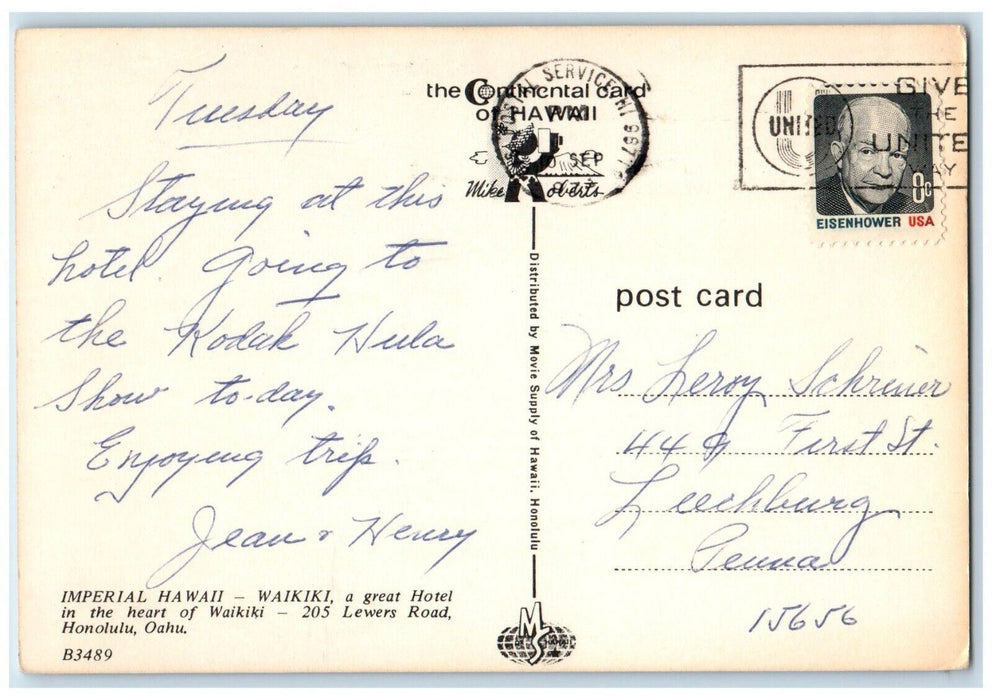 Tuesday
Staying at this
hotel. Going to
the Kodak Hula
Show to-day.
Enjoying trip.
Jean & Henry
IMPERIAL HAWAII – WAIKIKI, a great Hotel
in the heart of Waikiki – 205 Lewers Road,
Honolulu, Oahu.
B3489
the Continental Card
of HAWAII
Mike Roberts
Distributed by Movie Supply of Hawaii, Honolulu
MS
POSTAL SERVICE HI
PM
SEP
UNITED
GIVE
THE
UNITE
AY
8c
EISENHOWER USA
post card
Mrs Leroy Schreiner
449 First St.
Leechburg
Penna
15656